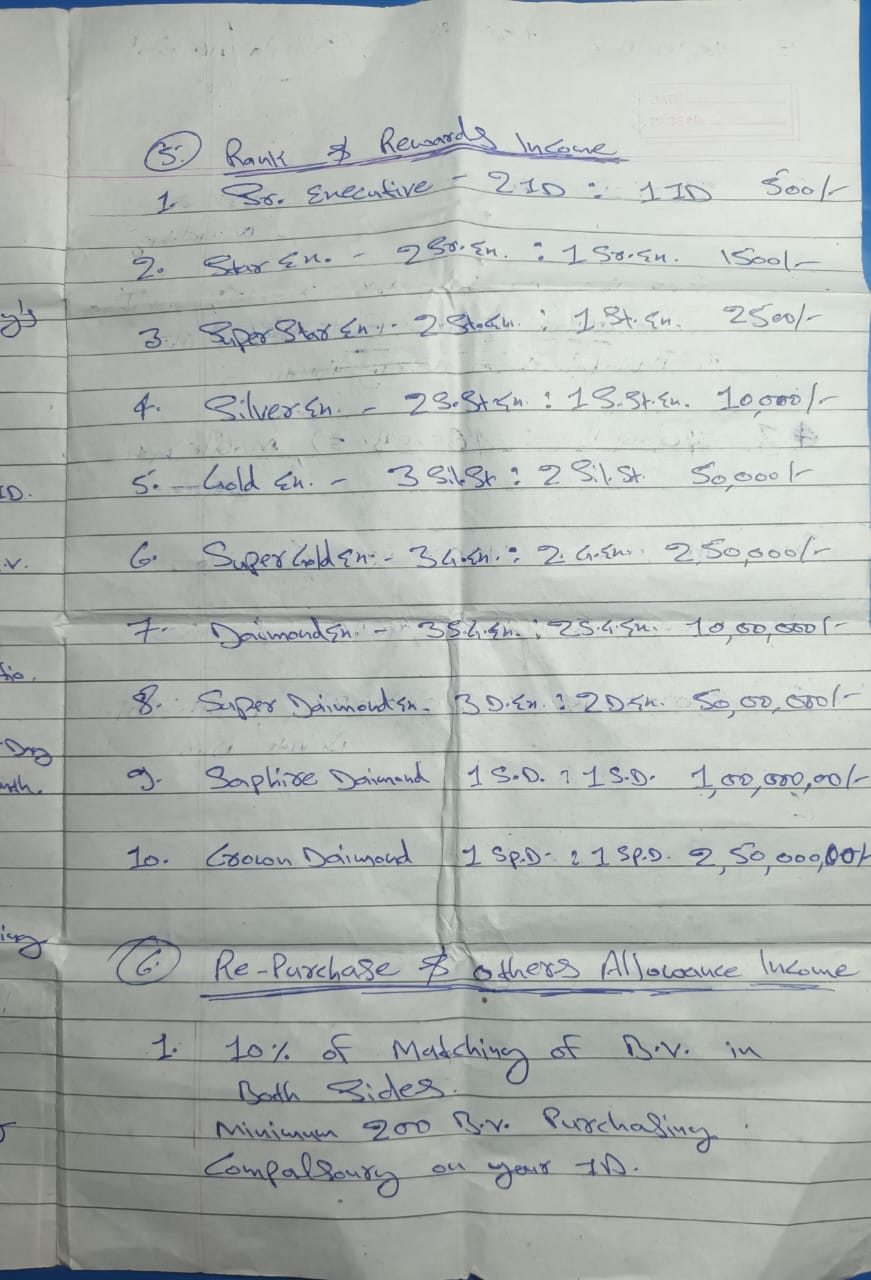 5. Rank & Rewards Income
1. Sr. Executive - 2 ID : 1 ID 500/-
2. Star Ex. - 2 Sr. Ex. : 1 Sr. Ex. 1500/-
3. Super Star Ex. - 2 St. Ex. : 1 St. Ex. 2500/-
4. Silver Ex. - 2 S. St. Ex. : 1 S. St. Ex. 10,000/-
5. Gold Ex. - 3 Sil. St : 2 Sil. St. 50,000/-
6. Super Gold Ex. - 3 G. Ex. : 2 G. Ex. 2,50,000/-
7. Daimond Ex. - 3 S.G. Ex. : 2 S.G. Ex. 10,00,000/-
8. Super Daimond Ex. 3 D. Ex. : 2 D Ex. 50,00,000/-
9. Saphire Daimond 1 S.D. : 1 S.D. 1,00,000,00/-
10. Crown Daimond 1 Sp.D. : 1 Sp.D. 2,50,000,00/-
6. Re-Purchase & others Allowance Income
1. 10% of Matching of B.V. in
Both Sides.
Minimum 200 B.V. Purchasing
Compalsoury on your ID.
y's
ID.
.V.